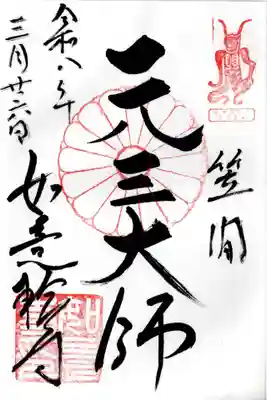 笠間
元三大師
令和八年
三月廿六日
如意輪寺